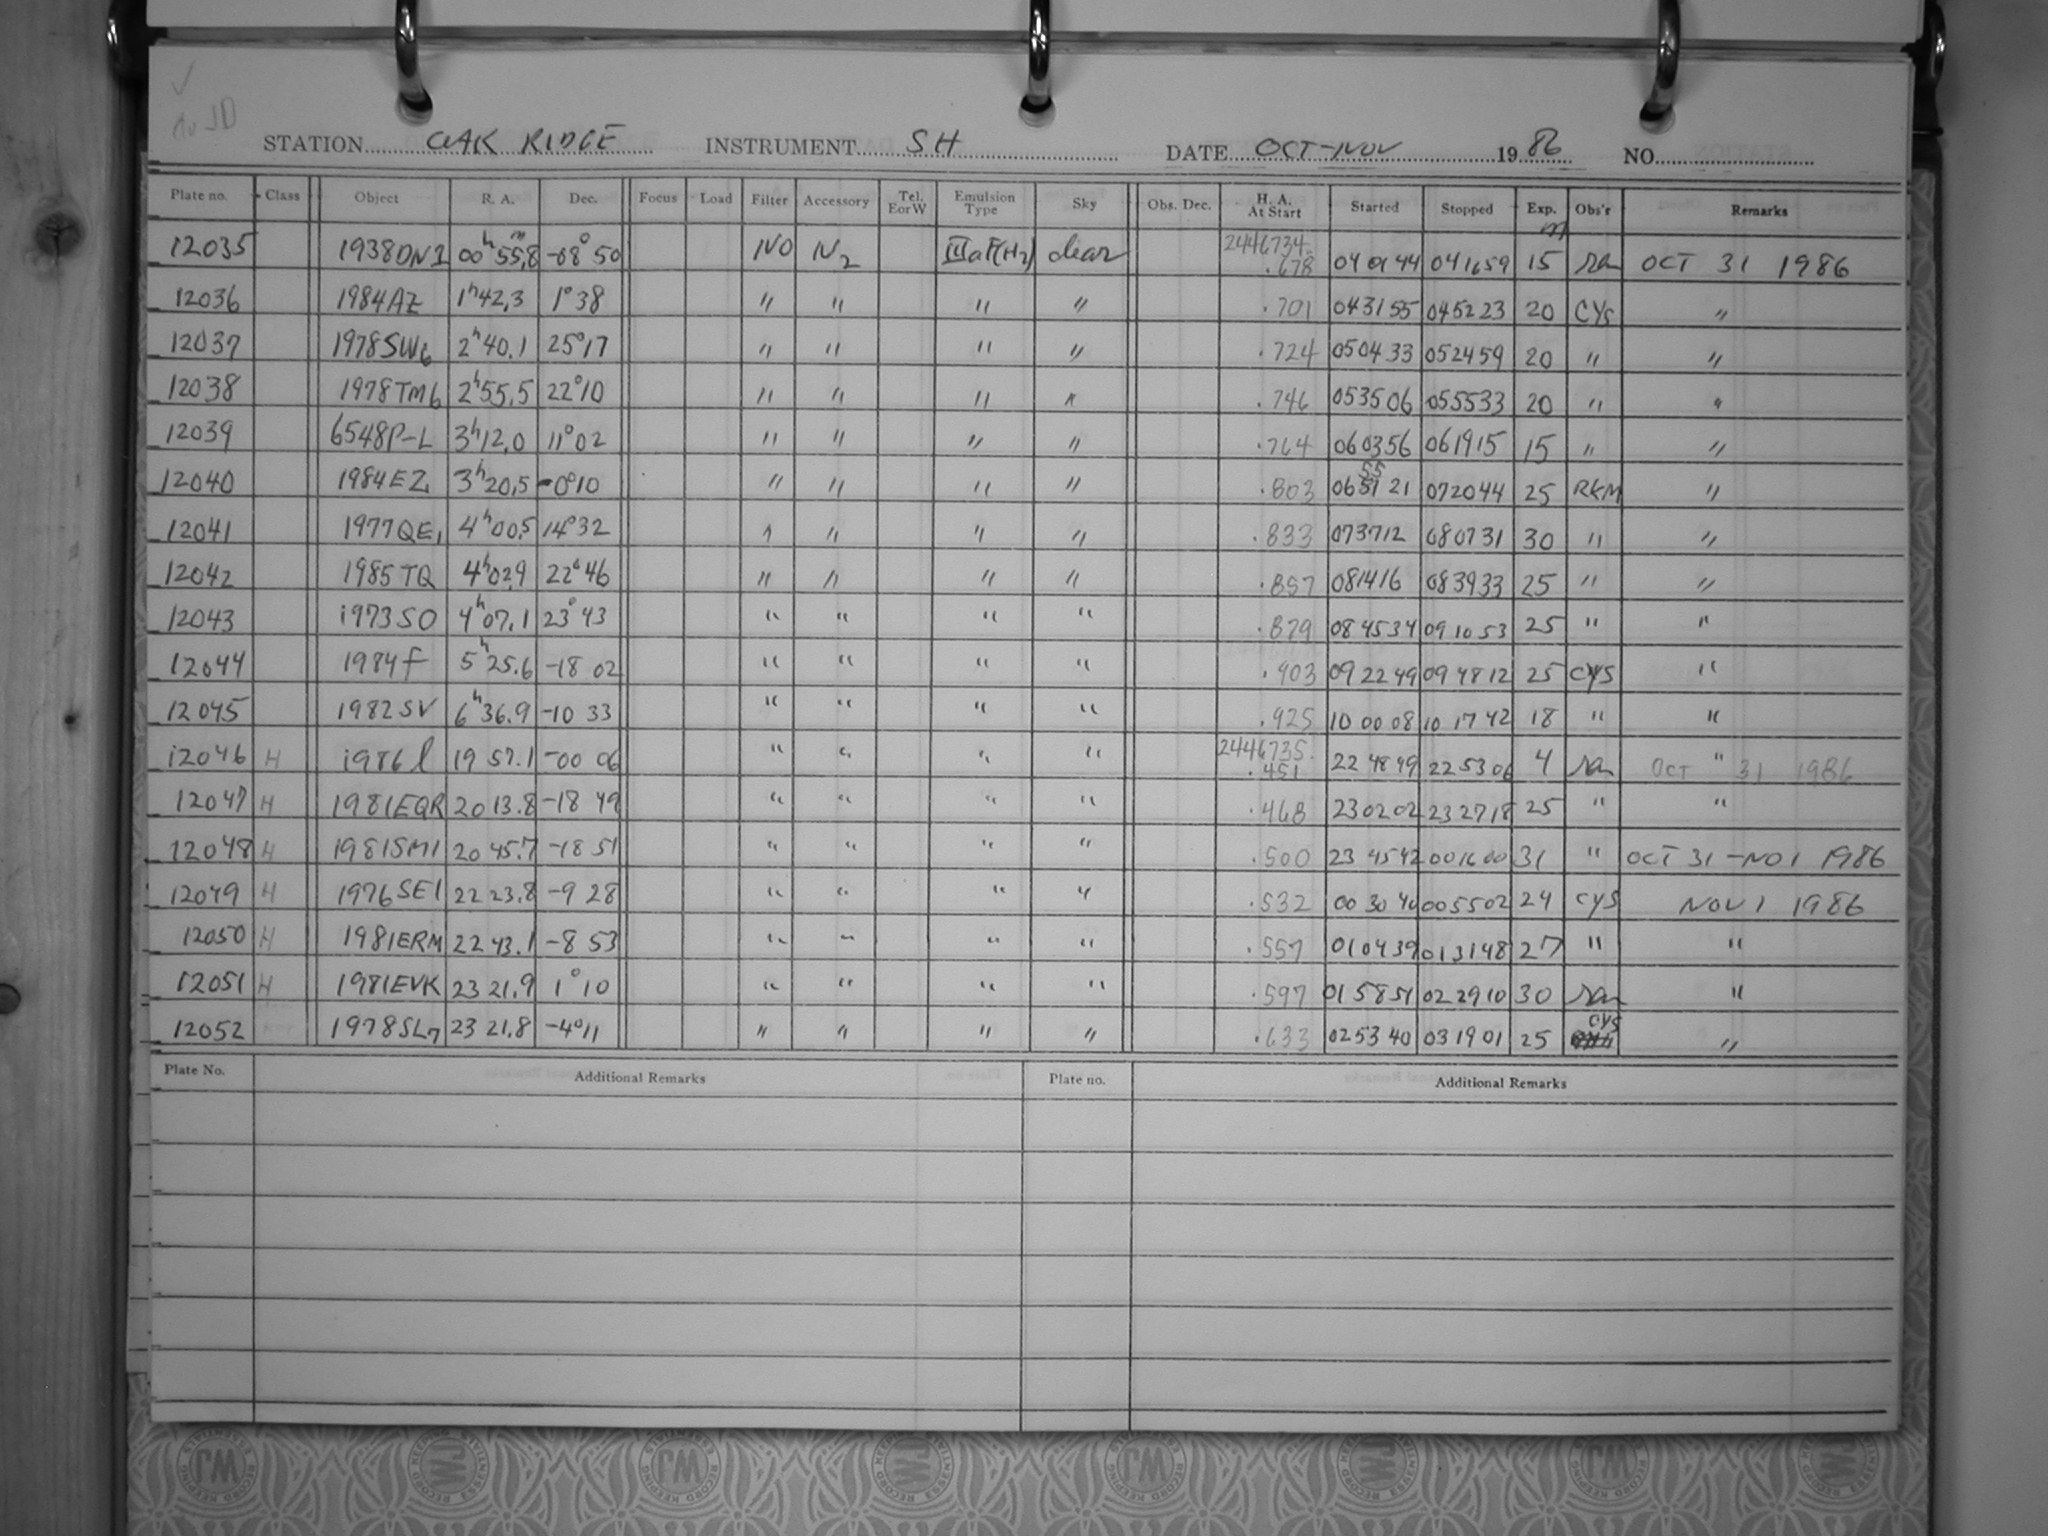 ✓
No JD
STATION OAK RIDGE INSTRUMENT SH DATE OCT-NOV 1986 NO.
Plate no. Class Object R. A. Dec. Focus Load Filter Accessory Tel. E or W Emulsion Type Sky Obs. Dec. H. A. At Start Started Stopped Exp. Obs'r Remarks
12035 1938DN1 00h 55.8m -08° 50 NO N2 IIIaF(H2) clear 2446734. .678 040144 041659 15m ran OCT 31 1986
12036 1984AZ 1h42.3 1°38 " " " " .701 043155 045223 20 CYS "
12037 1978SW6 2h40.1 25°17 " " " " .724 050433 052459 20 " "
12038 1978TM6 2h55.5 22°10 " " " " .746 053506 055533 20 " "
12039 6548P-L 3h12.0 11°02 " " " " .764 060356 061915 15 " "
12040 1984EZ1 3h20.5 -0°10 " " " " .803 065521 072044 25 RKM "
12041 1977QE1 4h00.5 14°32 " " " " .833 073712 080731 30 " "
12042 1985TQ 4h02.9 22°46 " " " " .857 081416 083933 25 " "
12043 1973SO 4h07.1 23°43 " " " " .879 084534 091053 25 " "
12044 1984f 5h25.6 -18 02 " " " " .903 092249 094812 25 CYS "
12045 1982SV 6h36.9 -10 33 " " " " .925 100008 101742 18 " "
12046 H 1986l 19 57.1 -00 06 " " " " 2446735. .451 224849 225306 4 ran " OCT 31 1986
12047 H 1981EQR 20 13.8 -18 49 " " " " .468 230202 232718 25 " "
12048 H 1981SM1 20 45.7 -18 51 " " " " .500 234542 001600 31 " OCT 31-NO 1 1986
12049 H 1976SE1 22 23.8 -9 28 " " " " .532 003040 005502 24 CYS NOV 1 1986
12050 H 1981ERM 22 43.1 -8 53 " " " " .557 010439 013148 27 " "
12051 H 1981EVK 23 21.9 1°10 " " " " .597 015851 022910 30 ran "
12052 1978SL7 23 21.8 -4°11 " " " " .633 025340 031901 25 CYS "
Plate No. Additional Remarks Plate no. Additional Remarks